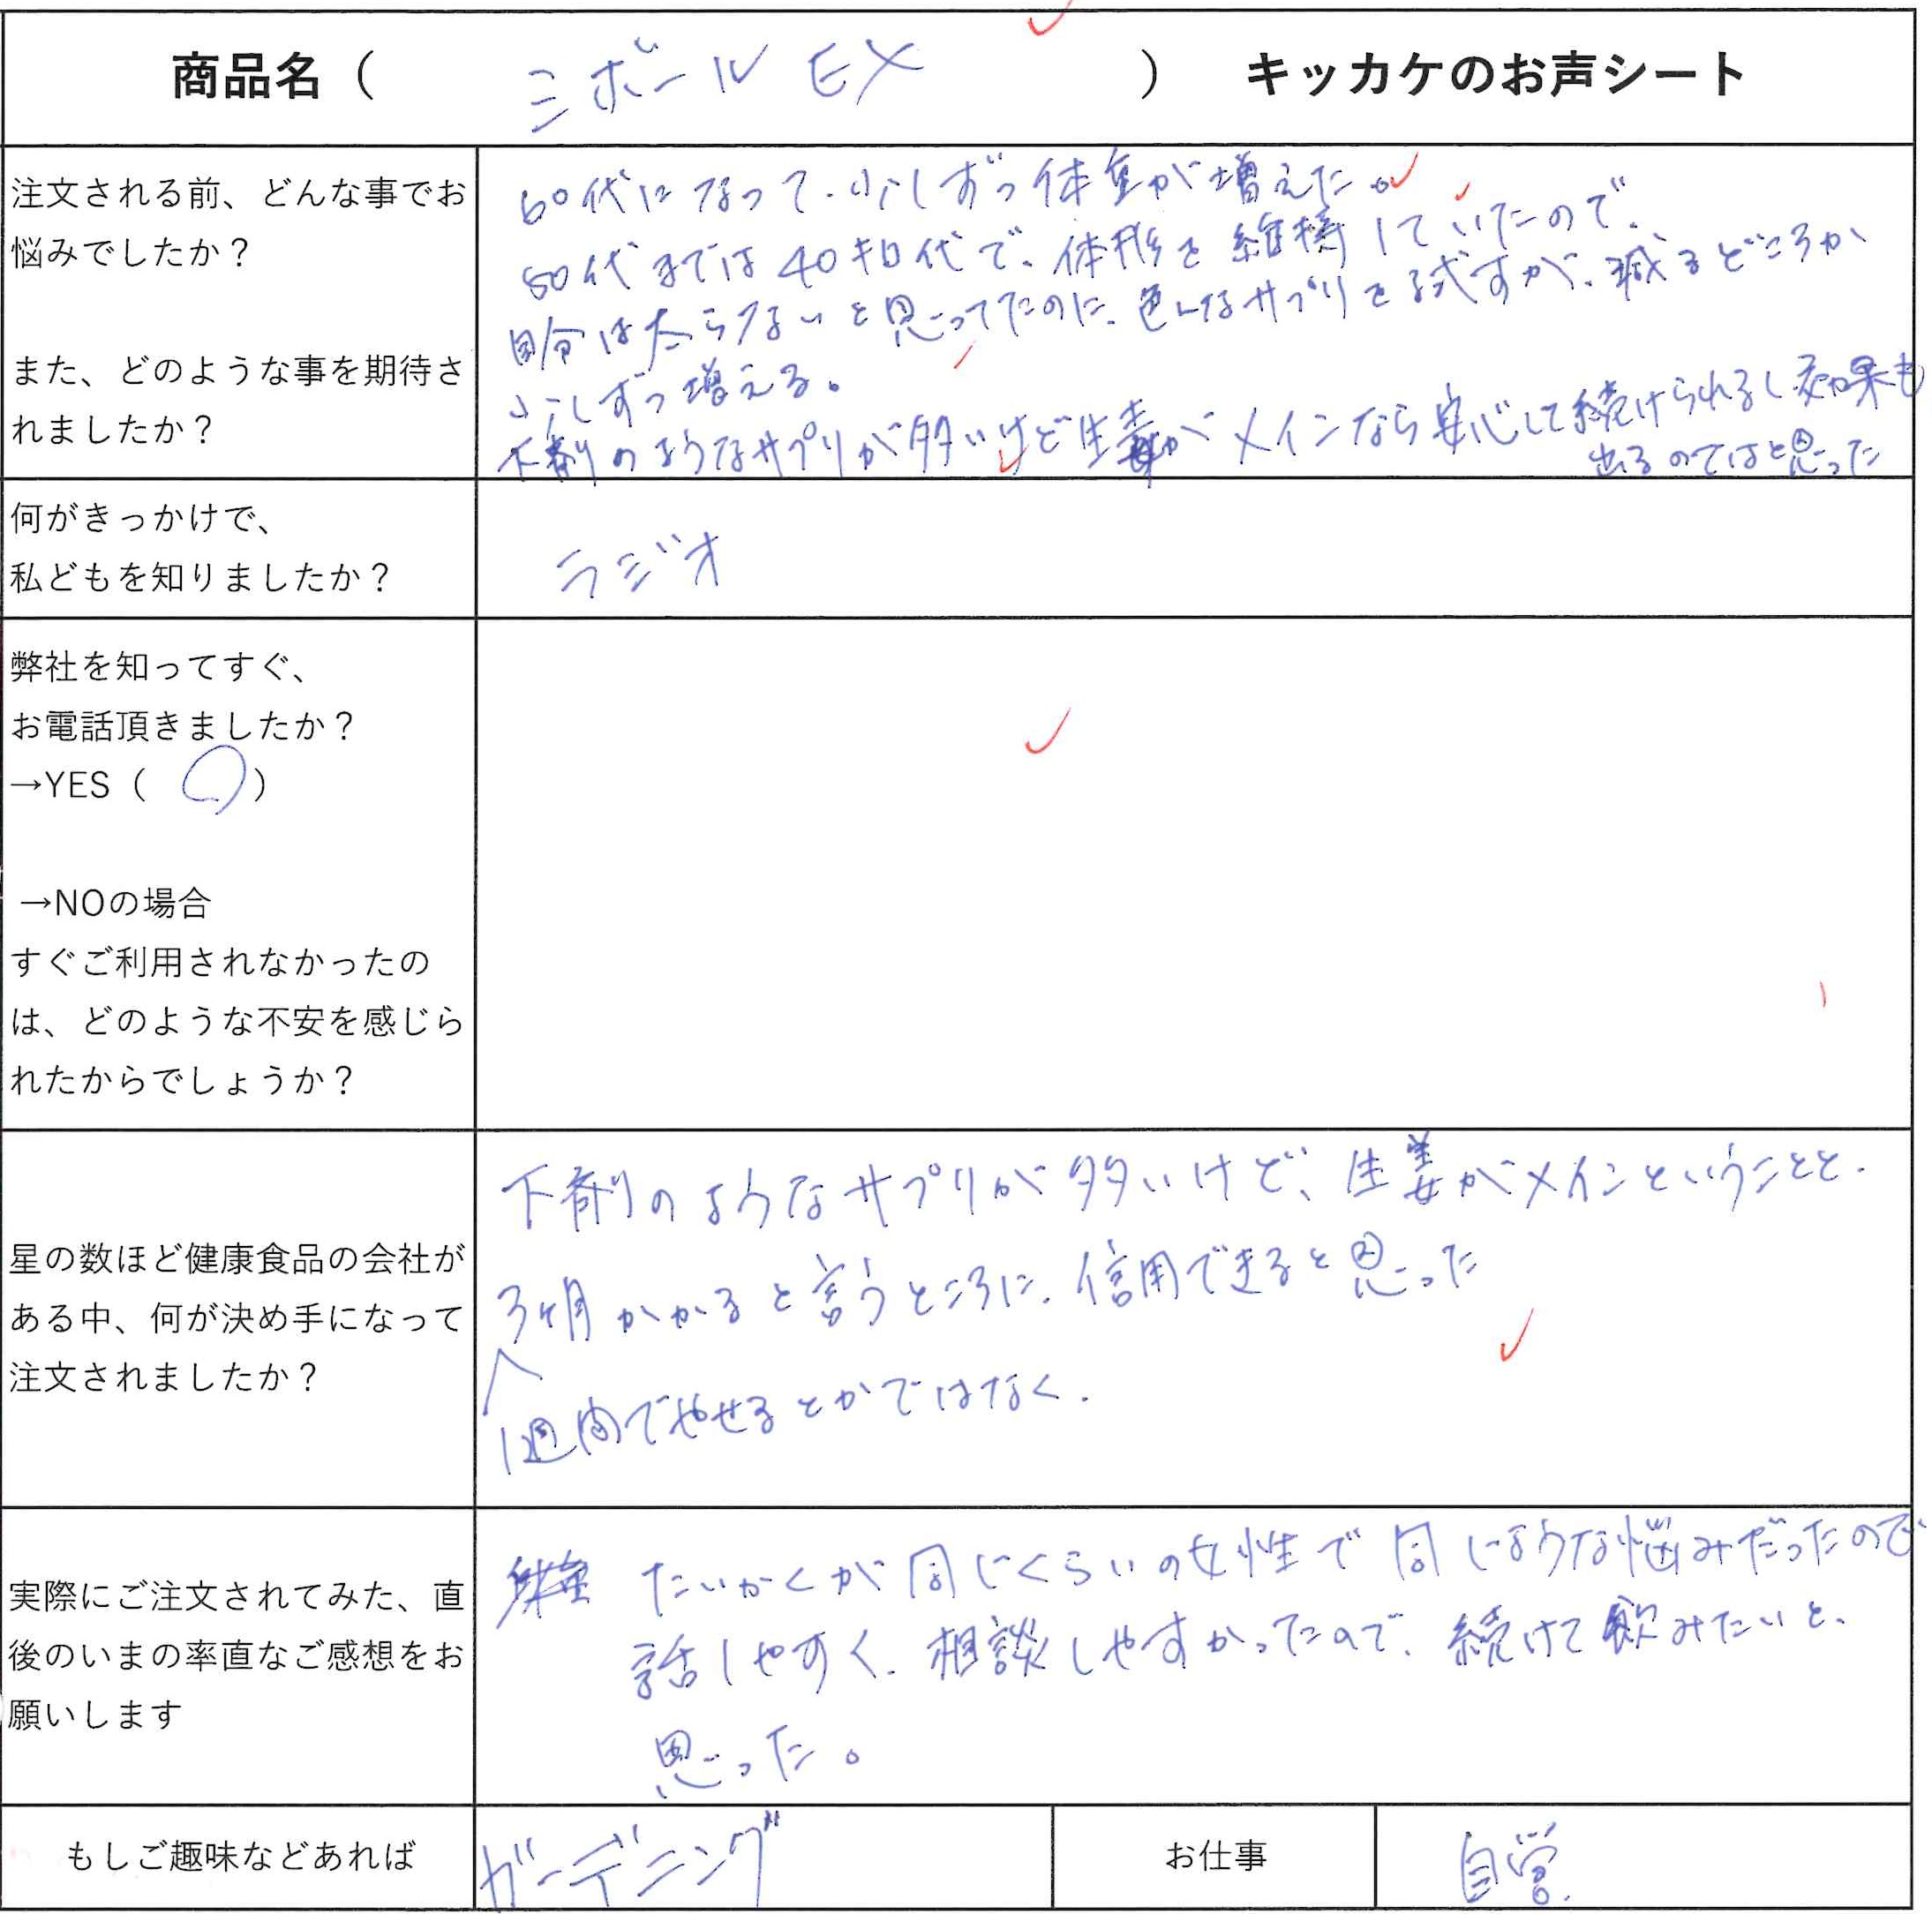 商品名（ シボールEX ） キッカケのお声シート
注文される前、どんな事でお
悩みでしたか？
また、どのような事を期待さ
れましたか？
60代になって、少しずつ体重が増えた。
50代までは40キロ代で、体形を維持していたので、
自分は太らないと思ってたのに、色んなサプリを試すが、減るどころか
少しずつ増える。
下剤のようなサプリが多いけど生姜がメインなら安心して続けられるし効果も
出るのではと思った
何がきっかけで、
私どもを知りましたか？
ラジオ
弊社を知ってすぐ、
お電話頂きましたか？
→YES（ ○ ）
→NOの場合
すぐご利用されなかったの
は、どのような不安を感じら
れたからでしょうか？
星の数ほど健康食品の会社が
ある中、何が決め手になって
注文されましたか？
下剤のようなサプリが多いけど、生姜がメインということと、
3ヶ月かかると言うところに、信用できると思った
1週間でやせるとかではなく、
実際にご注文されてみた、直
後のいまの率直なご感想をお
願いします
たいかくが同じくらいの女性で同じような悩みだったので
話しやすく、相談しやすかったので、続けて飲みたいと、
思った。
もしご趣味などあれば
ガーデニング
お仕事
自営